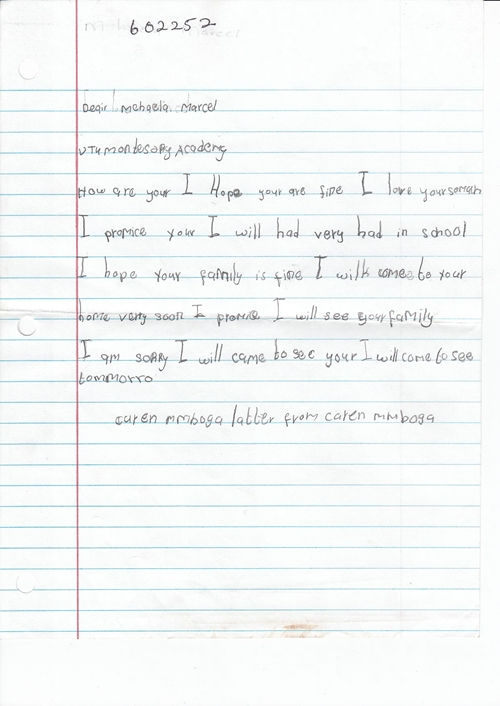 602252
Dear Michaela Marcel
UTU montesary Academy
How are your I Hope your are fine I love your somach
I promice your I will had very had in school
I hope your family is fine I will comes to your
home very soon I promic I will see your family
I am sorry I will came to see your I will come to see
tommorro
caren mmboga latter from caren mmboga